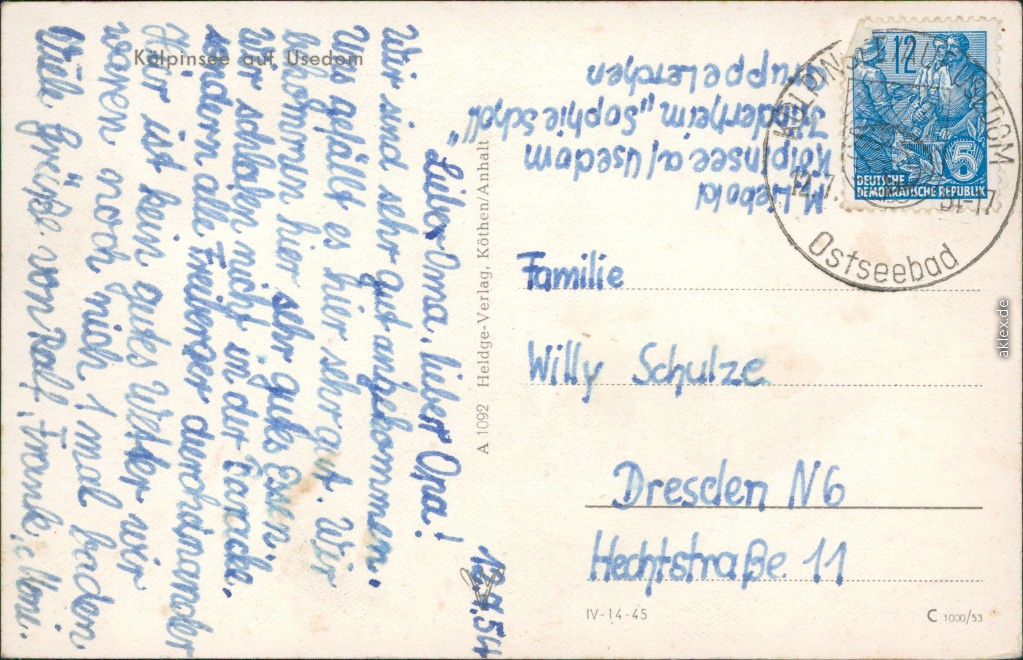 Kölpinsee auf Usedom
12.7.54
Lieber Oma, lieber Opa!
Wir sind sehr gut angekommen.
Uns gefällt es hier sehr gut. Wir
bekomen hier sehr gutes Essen.
Wir schlafen nicht in der Baracke,
sondern alle Freiberger durcheinander
Hier ist kein gutes Wetter wir
waren noch nich 1 mal baden.
Viele Grüße von Ralf, Frank, Moni.
A 1092 Heldge-Verlag, Köthen/Anhalt
M. Liebold
Kölpinsee a/Usedom
Kinderheim „Sophie Scholl"
Gruppe Lerchen
12
5
DEUTSCHE
DEMOKRATISCHE REPUBLIK
12.7.
-17
Ostseebad
Familie
Willy Schulze
Dresden N6
Hechtstraße 11
IV-14-45
C 1000/53
aklex.de